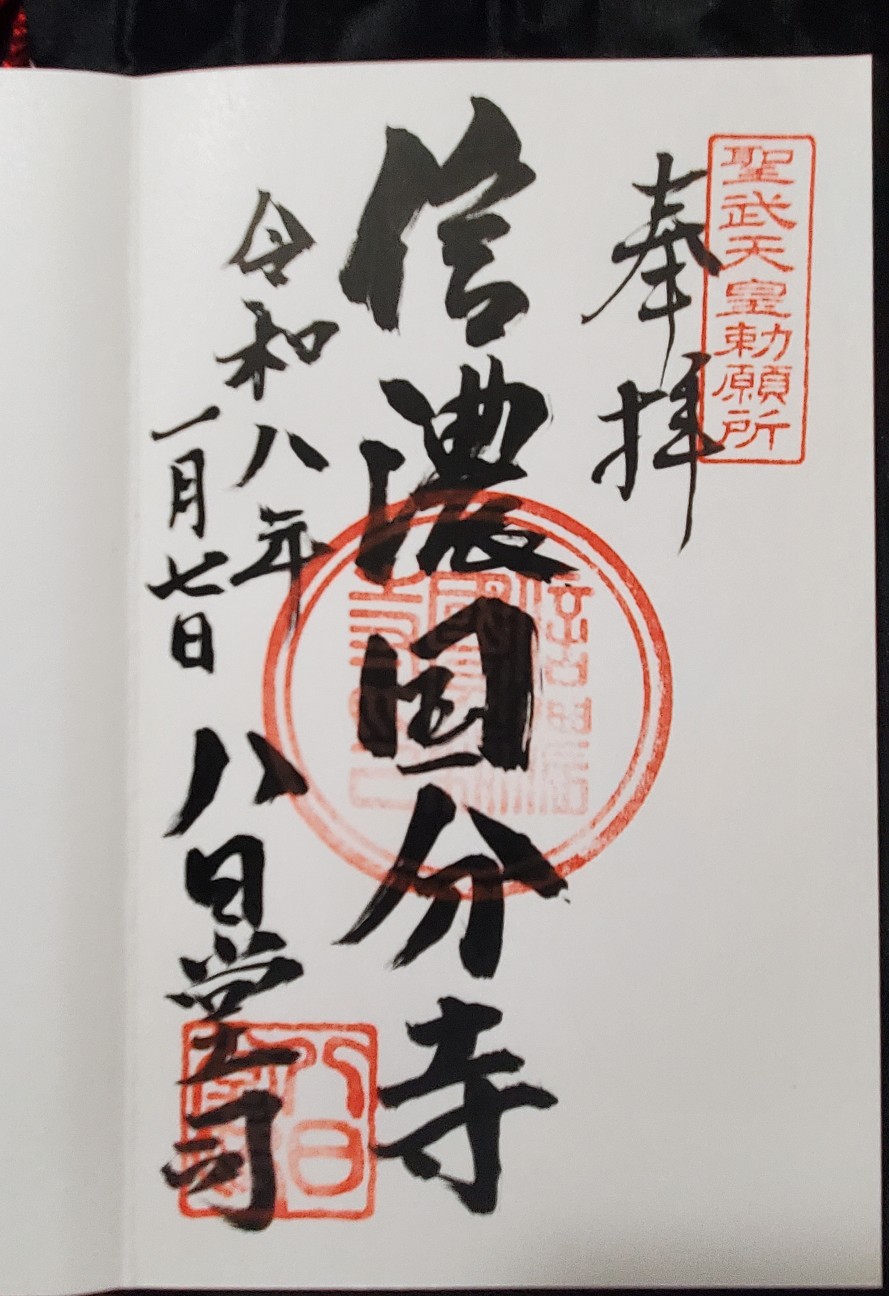 聖武天皇勅願所
奉拝
信濃国分寺
令和八年
一月七日
八日堂司
八日